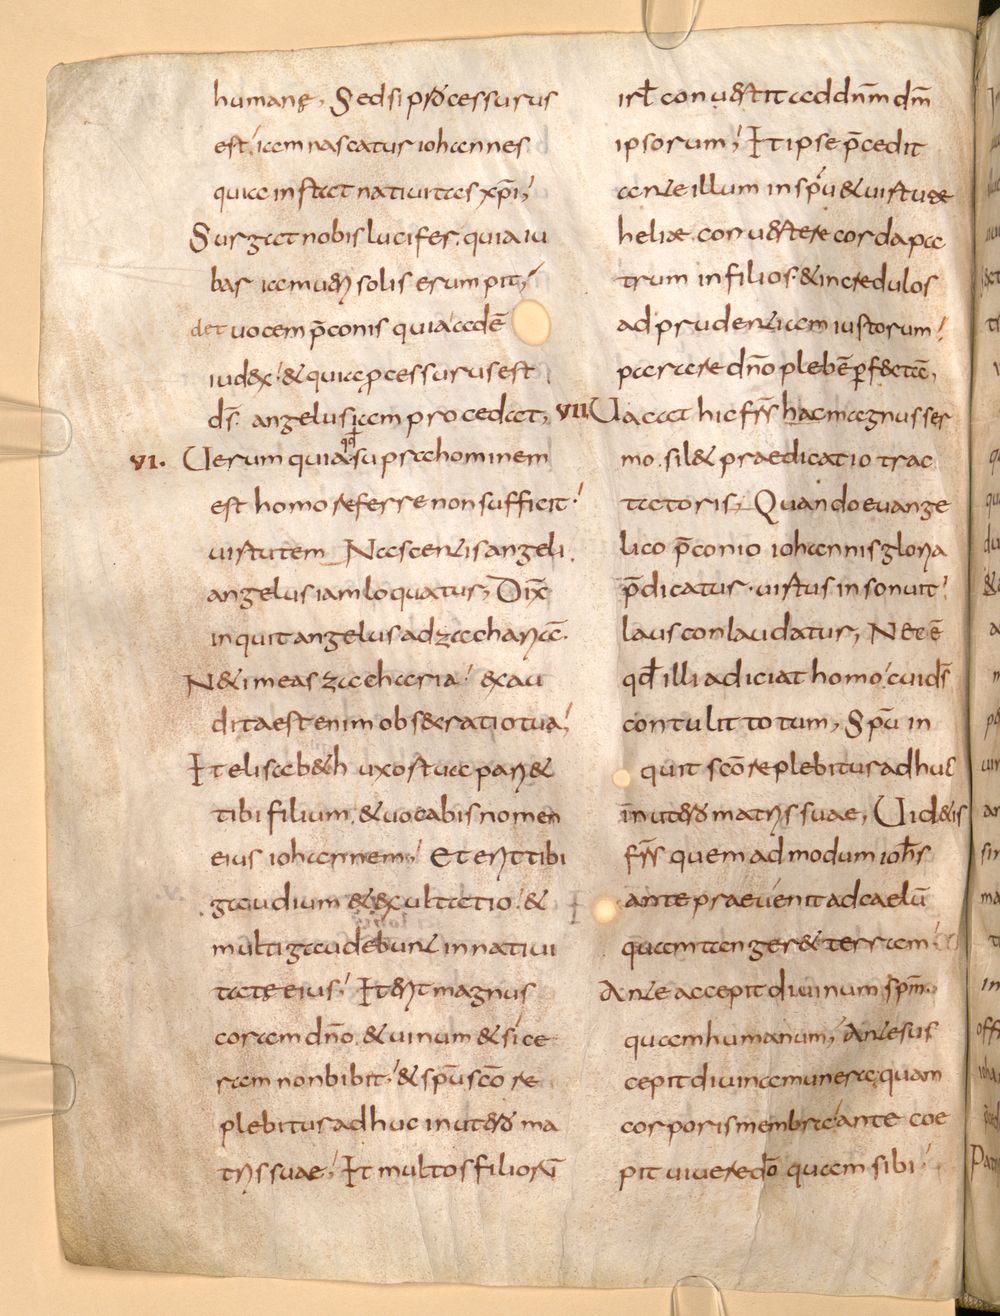 humanę, Sed si p̱rocessurus
est, iam nascatur iohannes.
quia instat natiuitas xp̄i,
Surgat nobis lucifer. quia iu
bar iam ueri solis erumpit,
det uocem p̄conis quia adē
iudex. & quia pcessurus est
ds̄. angelus iam procedat,
VI. Uerum quia supra hominem
qd
est homo referre non sufficit.
uirtutem Nascentis angeli.
angelus iam loquatur, Dix̄
inquit angelus ad zachariā.
N& imeas zacharia. exau
dita est enim obsecratio tua,
Et elisab&h uxor tua pari&
tibi filium. & uocabis nomen
eius iohannem, Et erit tibi
gaudium & exultatio. &
multi gaudebunt in natiui
tate eius, Et erit magnus
coram dn̄o. & uinum & sice
ram non bibit. & sp̄u scō re
plebitur adhuc in utero ma
tris suae, Et multos filiorū
irl̄ conuertit ad dn̄m dm̄
ipsorum, Et ipse p̄cedit
ante illum in sp̄u & uirtute
heliae. conuertere corda pa
trum in filios. & incredulos
ad prudentiam iustorum,
parare dn̄o plebē perfectā,
VII Uacat hic frs̄ hac magnus ser
mo. sil& praedicatio trac
tatoris, Quando euange
lico p̄conio iohannis gloria
p̄dicatur. uirtus insonuit,
laus conlaudatur, Nā ē
qd̄ illi adiciat homo. cui ds̄
contulit totum, Sp̄u in
quit scō replebitur adhuc
in utero matris suae, Uid&is
frs̄ quem ad modum ioh̄s
ante praeuenit ad caelū
quam tanger& terram,
Ante accepit diuinum sp̄m.
quam humanum, Ante sus
cepit diuina munera. quam
corporis membra, ante coe
pit uiuere dō quam sibi,